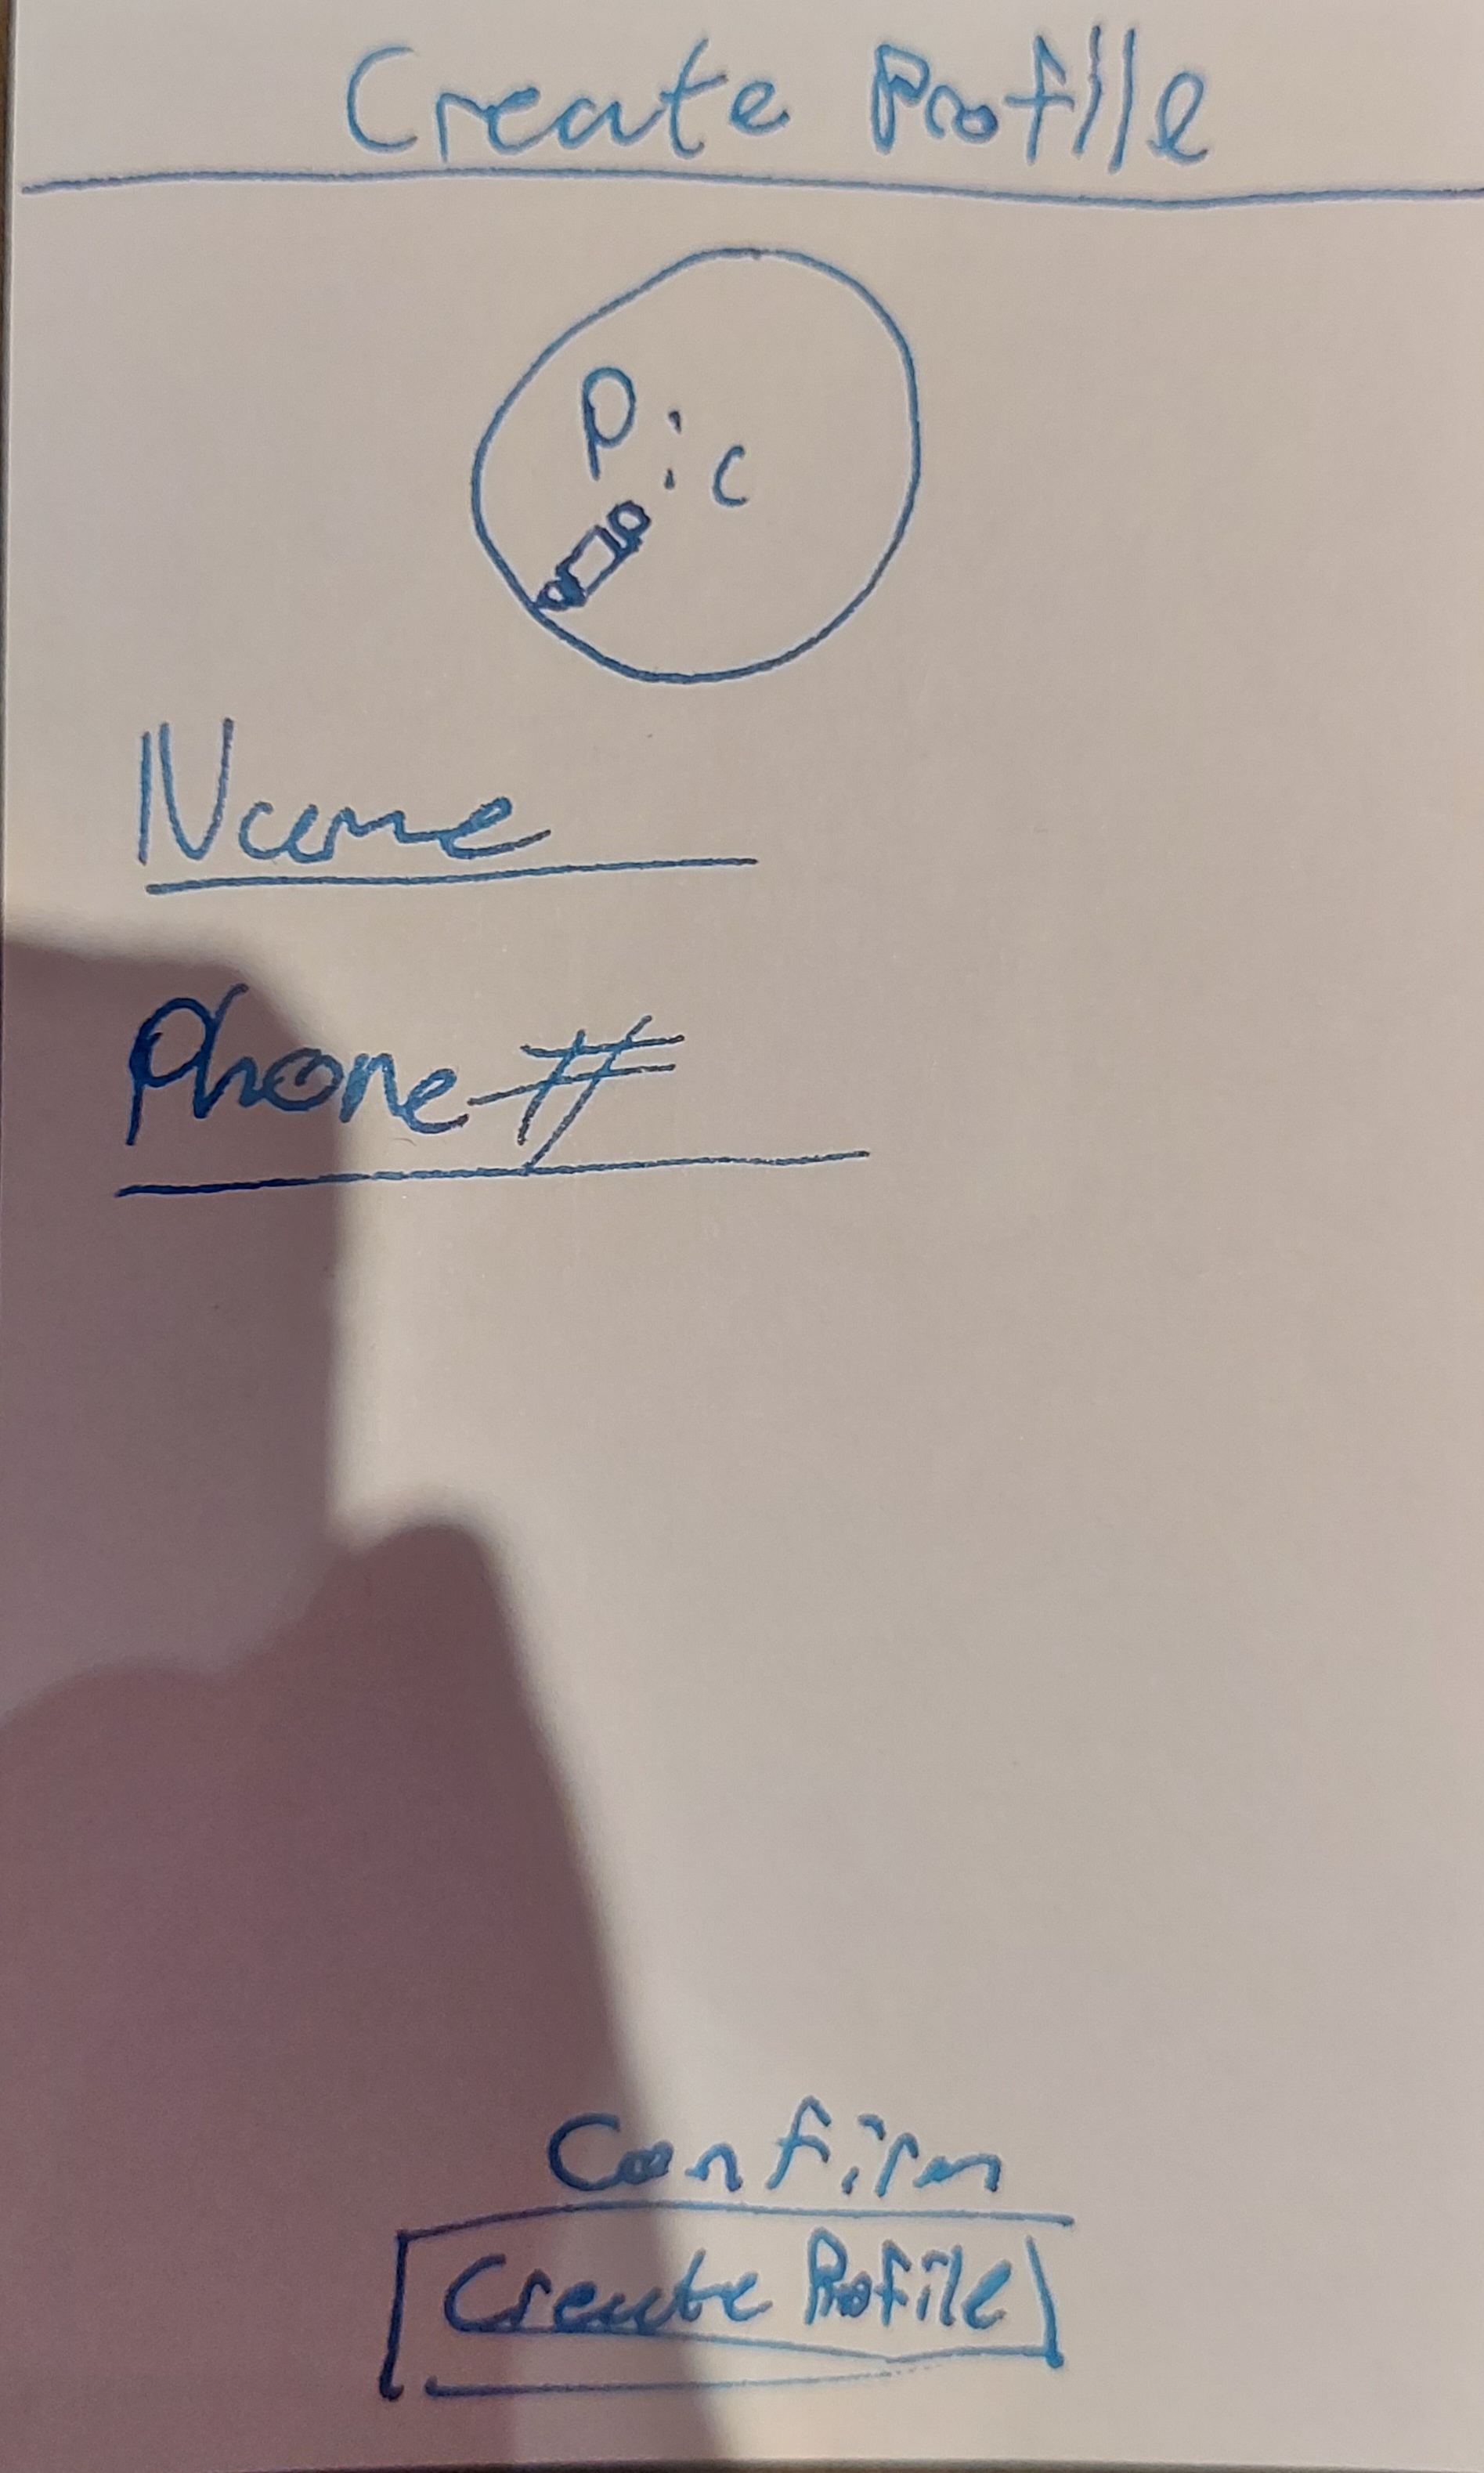 Create Profile
Pic
Name
Phone #
Confirm
Create Profile